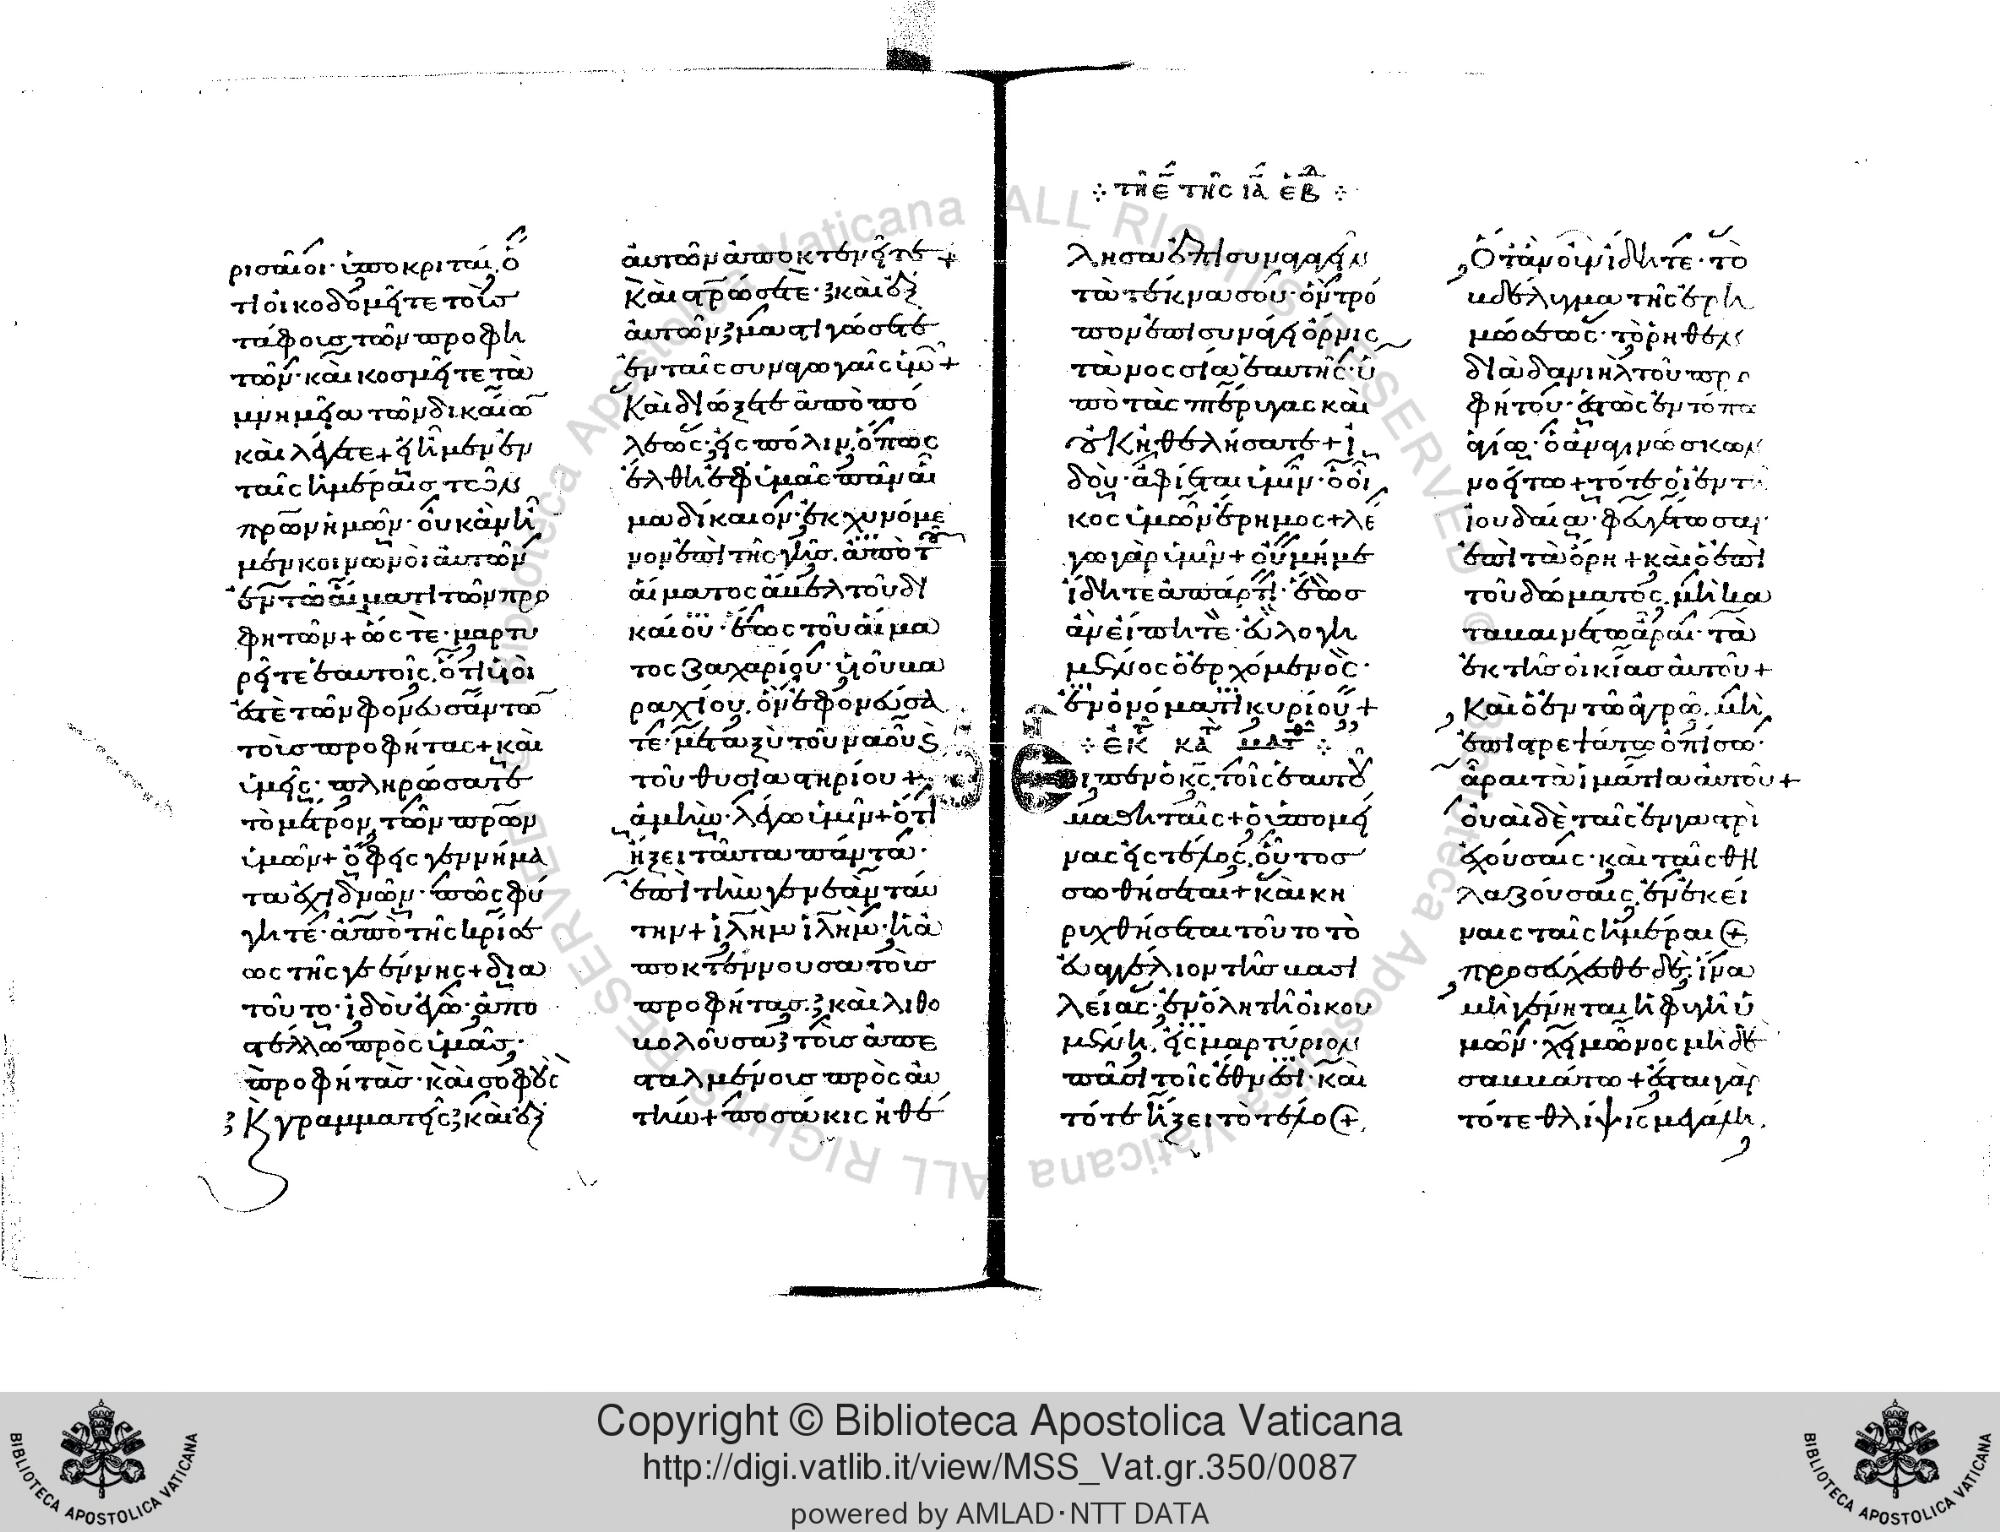 ρισαῖοι· ὑποκριταί, ὅ
τι οἰκοδομεῖτε τοὺς
τάφους τῶν προφη
τῶν· καὶ κοσμεῖτε τὰ
μνημεῖα τῶν δικαίω
καὶ λέγετε + εἰ ἦμεν ἐν
ταῖς ἡμέραις τῶν
πρων ἡμῶν· οὐκ ἂν ἦ
μεν κοινωνοὶ αὐτῶν
ἐν τῶ αἵματι τῶν προ
φητῶν + ὥστε· μαρτυ
ρεῖτε ἑαυτοῖς, ὅτι υἱοὶ
ἐστὲ τῶν φονευσάντω
τοὺς προφήτας + καὶ
ὑμεῖς· πληρώσατε
τὸ μέτρον τῶν πρων
ὑμῶν + ὄφεις γεννήμα
τα ἐχιδνῶν· πῶς φύ
γητε· ἀπὸ τῆς κρίσε
ως τῆς γεέννης + δια
τοῦτο· ἰδοὺ ἐγὼ· ἀπο
στέλλω πρὸς ὑμᾶς·
προφήτας· καὶ σοφοὺς
κ γραμματεῖς καὶ ἐξ
αὐτῶν ἀποκτενεῖτε +
Καὶ στρώσετε· καὶ ἐξ
αὐτῶν μαστιγώσετε
ἐν ταῖς συναγωγαῖς ὑμῶ +
Καὶ διώξετε ἀπὸ πό
λεως· εἰς πόλιν, ὅπως
ἔλθη ἐφ' ὑμᾶς πᾶν αἷ
μα δίκαιον· ἐκχυνόμε
νον ἐπὶ τῆς γῆς. ἀπὸ τ
αἵματος ἄβελ τοῦ δι
καίου· ἕως τοῦ αἵμα
τος Ζαχαρίου· υἱοῦ βα
ραχίου, ὃν ἐφονεύσα
τε· μεταξὺ τοῦ ναοῦ κ
τοῦ θυσιαστηρίου +
ἀμὴν· λέγω ὑμῖν + ὅτι
ἥξει ταῦτα πάντα·
ἐπὶ τὴν γενεὰν ταύ
την + ἰλημ ἰλημ· ἡ ἀ
ποκτέννουσα τοὺς
προφήτας· καὶ λιθο
βολοῦσα τοὺς ἀπε
σταλμένους πρὸς αὐ
τήν + ποσάκις ἠθέ
τῆ ε τῆς ια εβδ
λησα ἐπισυναγαγεῖν
τὰ τέκνα σου· ὃν τρό
πον ἐπισυνάγει ὄρνις
τὰ νοσσία ἑαυτῆς· ὑ
πὸ τὰς πτέρυγας καὶ
οὐκ ἠθελήσατε + ἰ
δοὺ· ἀφίεται ὑμῖν· ὁ οἶ
κος ὑμῶν ἔρημος + λέ
γω γὰρ ὑμῖν + οὐ μή με
ἴδητε ἀπάρτι· ἕως
ἂν εἴπητε· εὐλογη
μένος ὁ ἐρχόμενος·
ἐν ὀνόματι κυρίου +
ἐκ κατ ματθ
Ειπεν ὁ κς, τοῖς ἑαυτοῦ
μαθηταῖς + ὁ ὑπομεί
νας εἰς τέλος, οὗτος
σωθήσεται + καὶ κη
ρυχθήσεται τοῦτο τὸ
εὐαγγέλιον τῆς βασι
λείας· ἐν ὅλη τῆ οἰκου
μένη, εἰς μαρτύριον
πᾶσι τοῖς ἔθνεσι· καὶ
τότε ἥξει τὸ τέλος +
Ὅταν οὖν ἴδητε· τὸ
βδέλυγμα τῆς ἐρη
μώσεως· τὸ ῥηθὲν
διὰ δανιὴλ τοῦ προ
φήτου· ἑστὼς ἐν τόπω
ἁγίω· ὁ ἀναγινώσκων
νοείτω + τότε οἱ ἐν τῆ
ἰουδαία· φευγέτωσαν·
ἐπὶ τὰ ὄρη + καὶ ὁ ἐπὶ
τοῦ δώματος, μὴ κα
ταβαινέτω ἆραι· τὰ
ἐκ τῆς οἰκίας αὐτοῦ +
Καὶ ὁ ἐν τῶ ἀγρῶ, μὴ
ἐπιστρεψάτω ὀπίσω·
ἆραι τὰ ἱμάτια αὐτοῦ +
οὐαὶ δὲ ταῖς ἐν γαστρὶ
ἐχούσαις· καὶ ταῖς θη
λαζούσαις, ἐν ἐκεί
ναις ταῖς ἡμέραις +
προσεύχεσθε δὲ, ἵνα
μὴ γένηται ἡ φυγὴ ὑ
μῶν· χειμῶνος μὴ δὲ
σαββάτω + ἔσται γὰρ
τότε θλίψις μεγάλη,
Copyright © Biblioteca Apostolica Vaticana
http://digi.vatlib.it/view/MSS_Vat.gr.350/0087
powered by AMLAD·NTT DATA